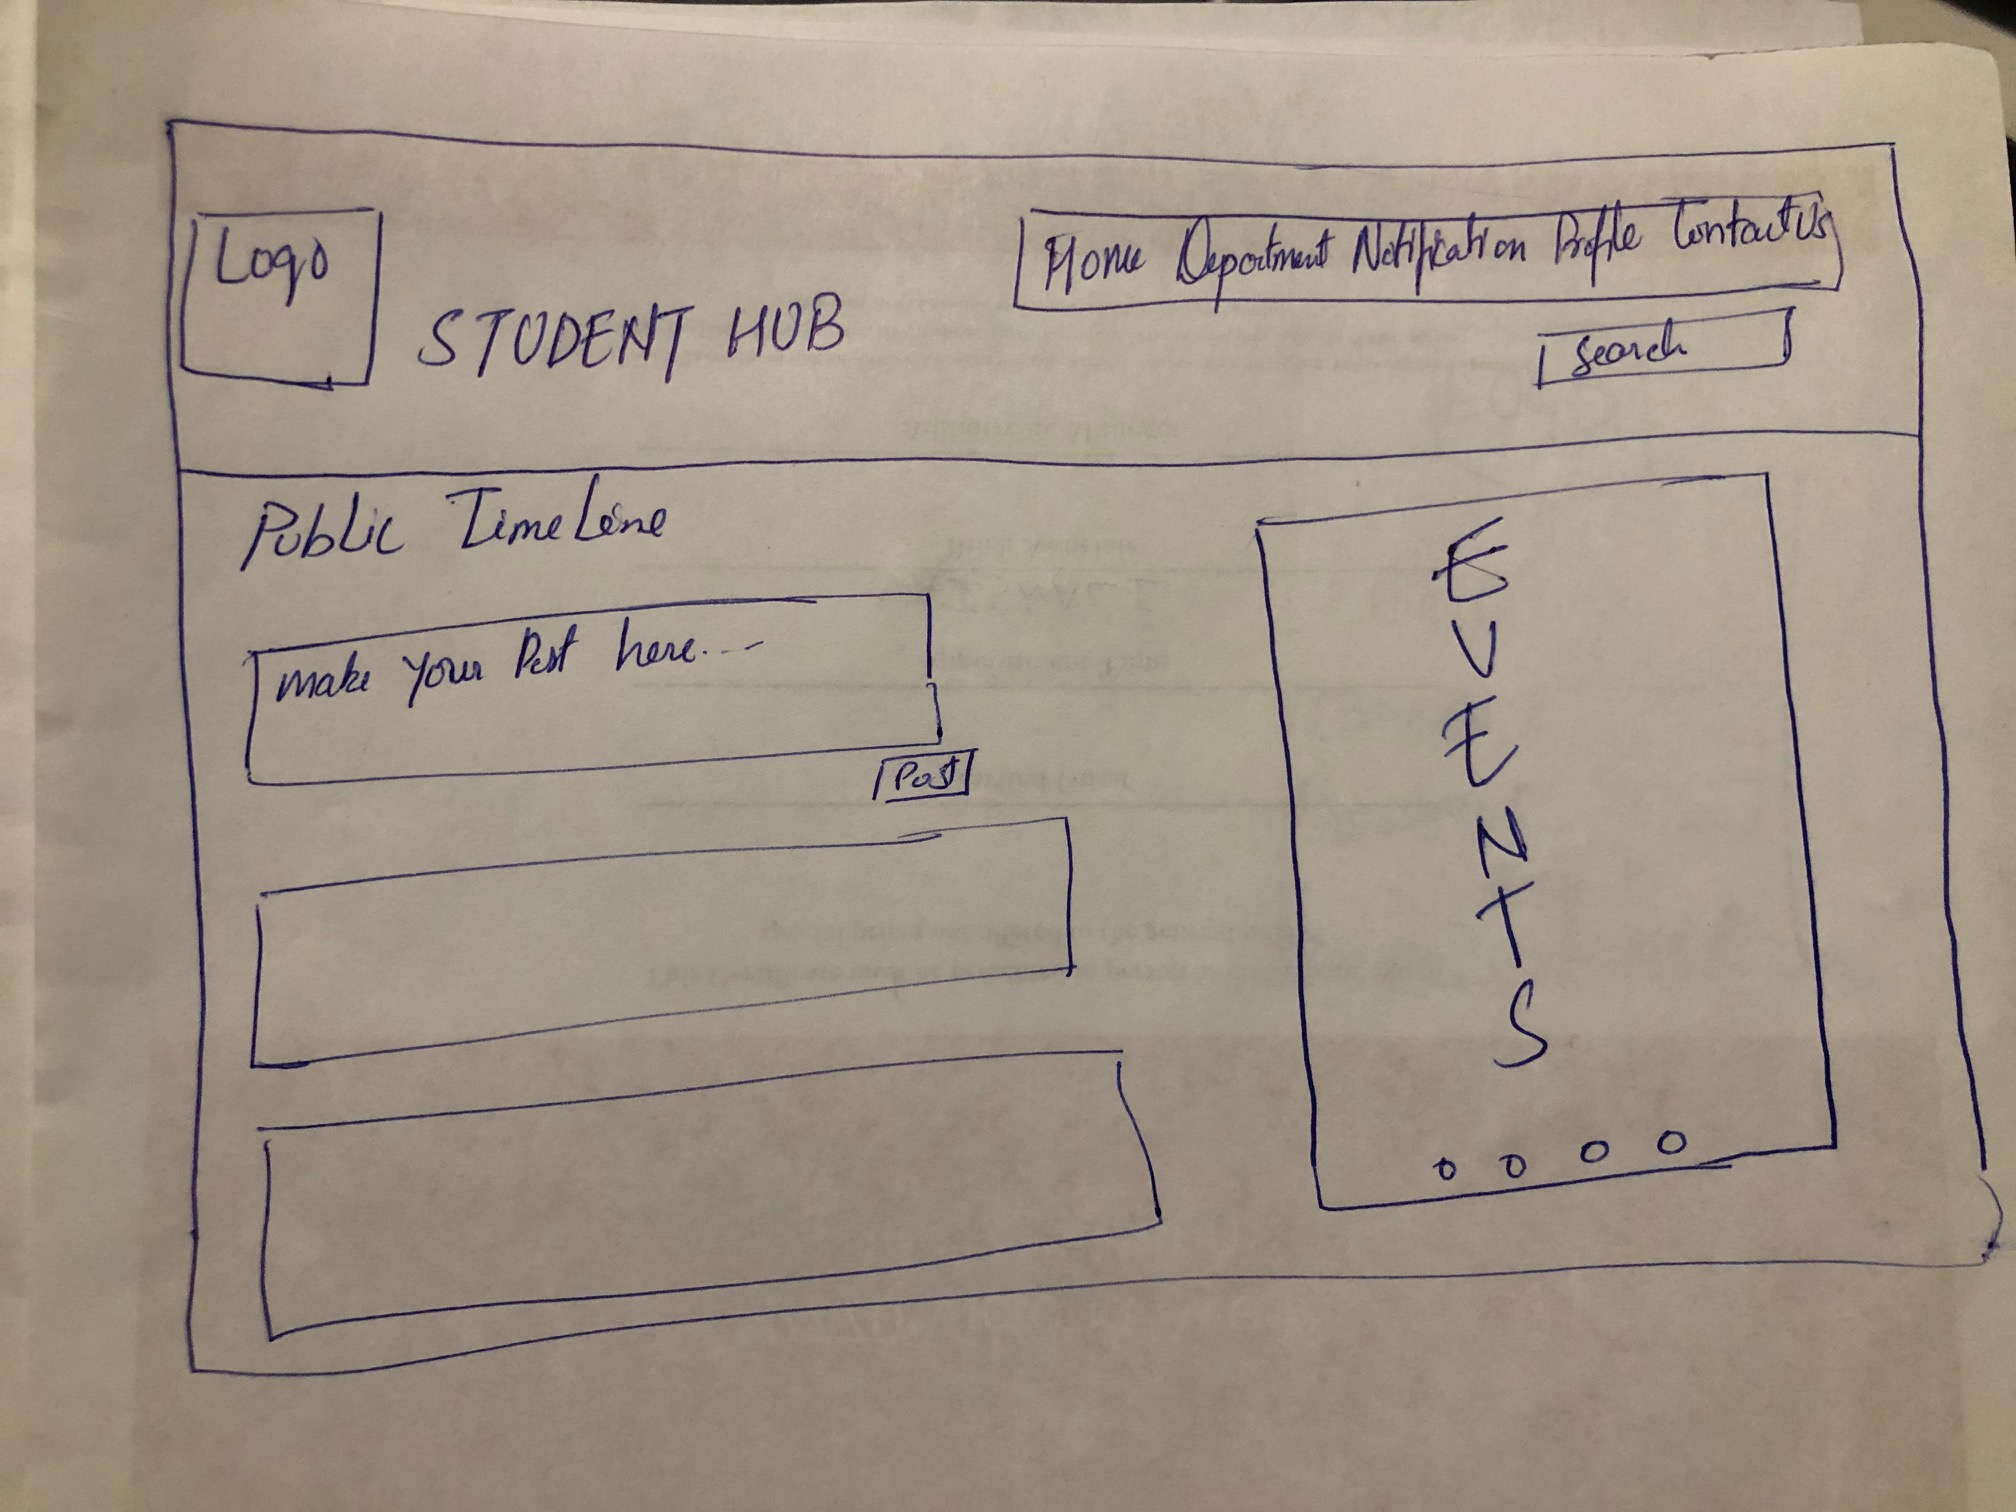 Logo
STUDENT HUB
Home Department Notification Profile Contact Us
Search
Public TimeLine
Make Your Post here...
Post
E
V
E
N
T
S